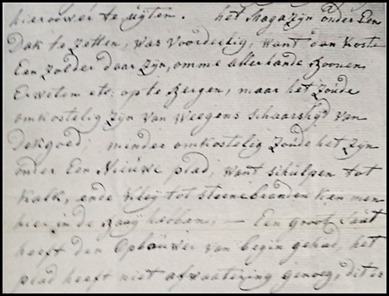 hierouwer te uijten. het Magazijn onder Een
Dak te zetten, was voordeelig, want dan koste
Een zolder daar zijn, omme allerhande Boonen
Erweten etc. op te Bergen, maar het zoude
omkostelig zijn van weegens schaarsheijd van
Dekgoed; minder omkostelig zoude het zijn
onder Een Nieuwe plad, want schulpen tot
kalk, ende kleij tot steenebranden kan men
hier in de baaij hebben, — Een groot
heeft den Opbouwer van begin gehad, het
plad heeft niet afwatering genoeg, dit is